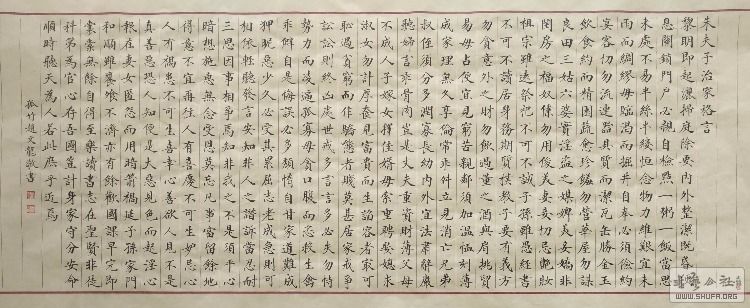 朱夫子治家格言
黎明即起灑掃庭除要內外整潔既昏便
息關鎖門戶必親自檢點一粥一飯當思
來處不易半絲半縷恆念物力維艱宜未
雨而綢繆毋臨渴而掘井自奉必須儉約
宴客切勿流連器具質而潔瓦缶勝金玉
飲食約而精園蔬愈珍饈勿營華屋勿謀
良田三姑六婆實淫盜之媒婢美妾嬌非
閨房之福奴僕勿用俊美妻妾切忌艷妝
祖宗雖遠祭祀不可不誠子孫雖愚經書
不可不讀居身務期質樸教子要有義方
勿貪意外之財勿飲過量之酒與肩挑貿
易毋占便宜見窮苦親鄰須加溫恤刻薄
成家理無久享倫常乖舛立見消亡兄弟
叔侄須分多潤寡長幼內外宜法肅辭嚴
聽婦言乖骨肉豈是丈夫重資財薄父母
不成人子嫁女擇佳婿毋索重聘娶媳求
淑女勿計厚奩見富貴而生諂容者最可
恥遇貧窮而作驕態者賤莫甚居家戒爭
訟訟則終凶處世戒多言言多必失勿恃
勢力而凌逼孤寡毋貪口腹而恣殺生禽
乖僻自是悔誤必多頹惰自甘家道難成
狎昵惡少久必受其累屈志老成急則可
相依輕聽發言安知非人之譖訴當忍耐
三思因事相爭焉知非我之不是須平心
暗想施惠無念受恩莫忘凡事當留餘地
得意不宜再往人有喜慶不可生妒忌心
人有禍患不可生喜幸心善欲人見不是
真善惡恐人知便是大惡見色而起淫心
報在妻女匿怨而用暗箭禍延子孫家門
和順雖饔飧不濟亦有餘歡國課早完即
囊橐無餘自得至樂讀書志在聖賢非徒
科第為官心存君國豈計身家守分安命
順時聽天為人若此庶乎近焉
孤竹趙文龍敬書
WWW.SHUFA.ORG